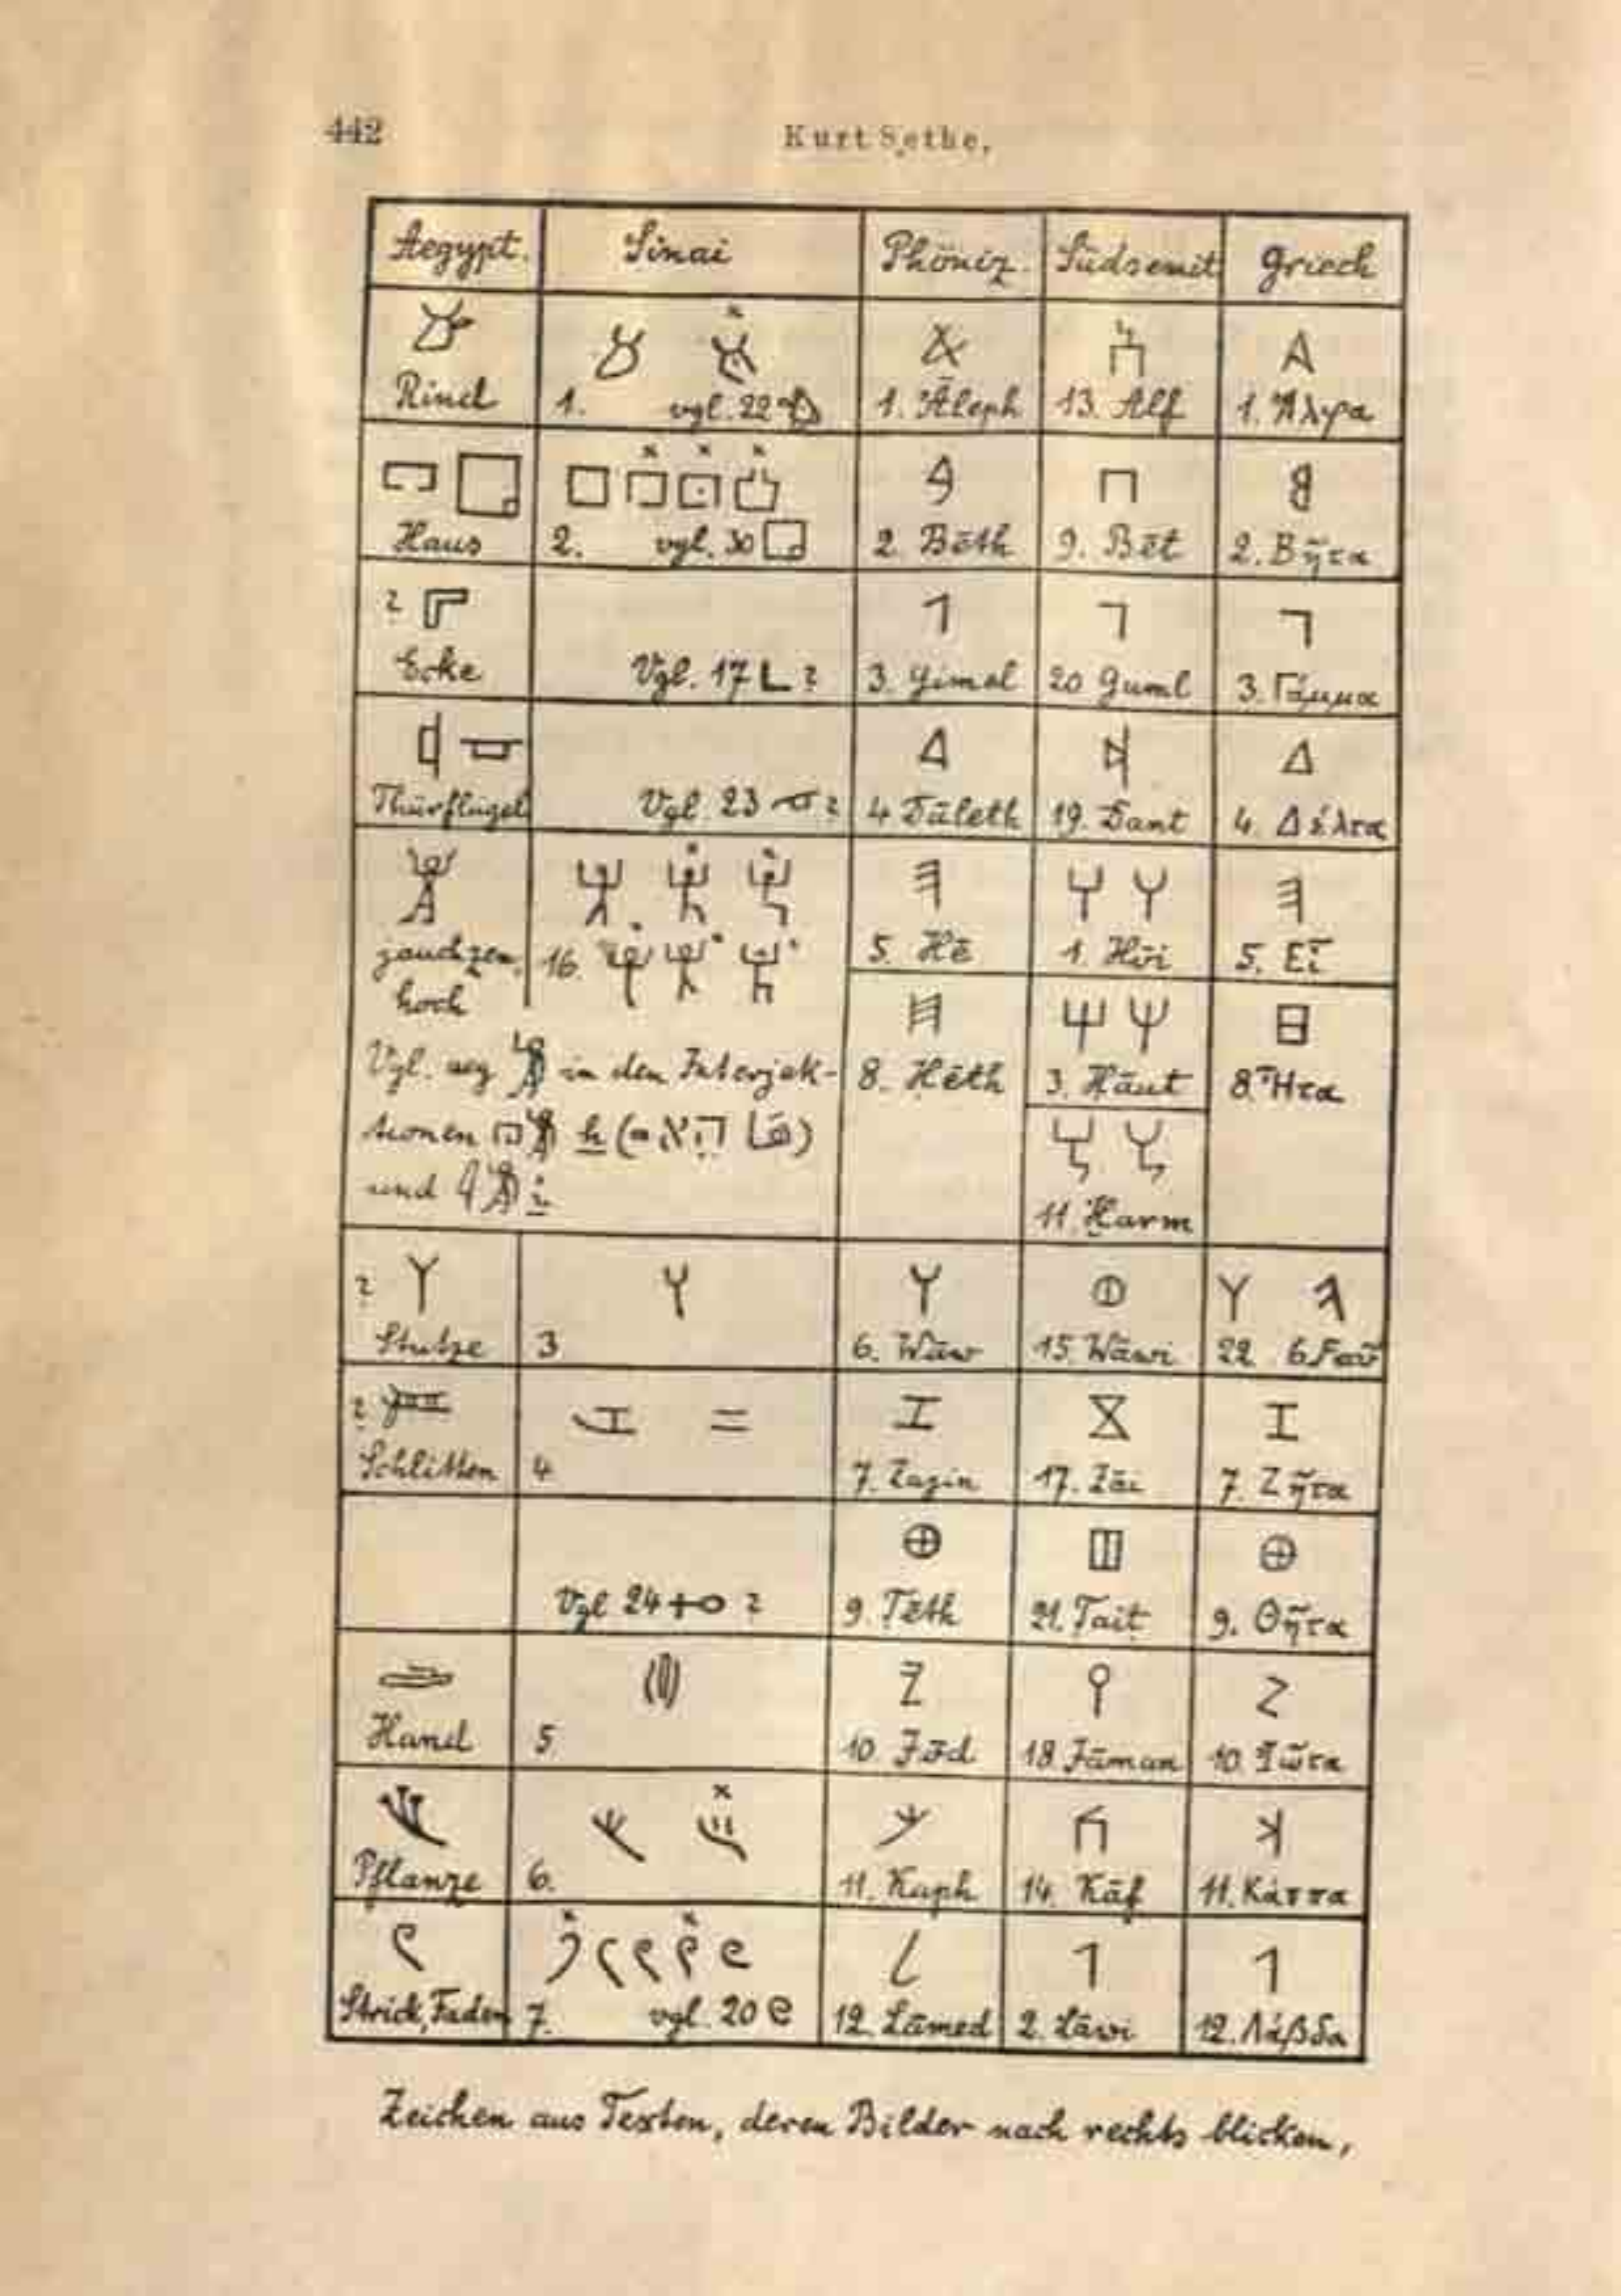 442
Kurt Sethe,
Aegypt. Sinai Phöniz. Südsemit Griech
Rind 1. vgl. 22 1. Āleph 13. Alf 1. Ἄλφα
Haus 2. vgl. 30 2. Bēth 9. Bēt 2. Βῆτα
? Ecke Vgl. 17 ? 3. Gimel 20 Guml 3. Γάμμα
Thürflügel Vgl. 23 ? 4 Dāleth 19. Dant 4. Δέλτα
jauchzen, hoch 16. 5. Hē 1. Hōi 5. Εἶ
Vgl. aeg in den Interjek-
tionen h
und i
8. Ḥēth 3. Ḥāut 8. Ἦτα
11. Ḫarm
? Stütze 3 6. Wāw 15. Wāwi 22 6 Ϝαῦ
? Schlitten 4 7. Zagin 17. Zāi 7. Ζῆτα
Vgl 24 ? 9. Ṭēth 21. Ṭait 9. Θῆτα
Hand 5 10. Jōd 18. Jāman 10. Ἰῶτα
Pflanze 6. 11. Kaph 14. Kāf 11. Κάππα
Strick, Faden 7. vgl. 20 12. Lāmed 2. Lāwi 12. Λάβδα
Zeichen aus Texten, deren Bilder nach rechts blicken,